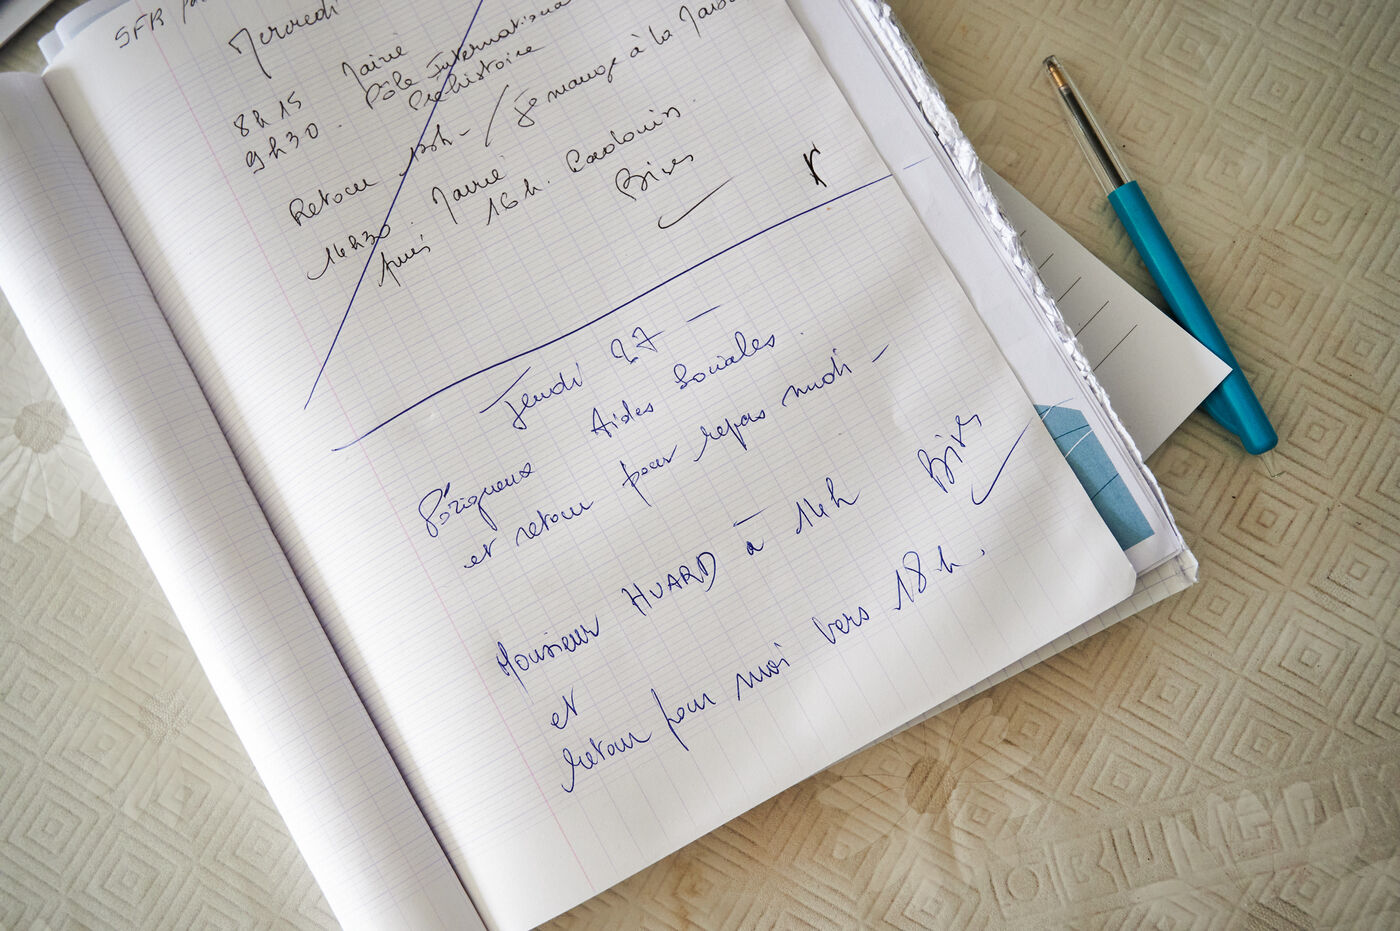 SFR
Mercredi
8h15 Mairie
9h30. Pôle International
Préhistoire
Retour 13h - / Je mange à la Maison
14h30 Mairie
Après 16h. Cadouin.
Bises
Jeudi 27 -
Périgueux Aides Sociales.
et retour pour repas midi -
Monsieur HUARD à 14h Bises
et
retour pour moi vers 18h.